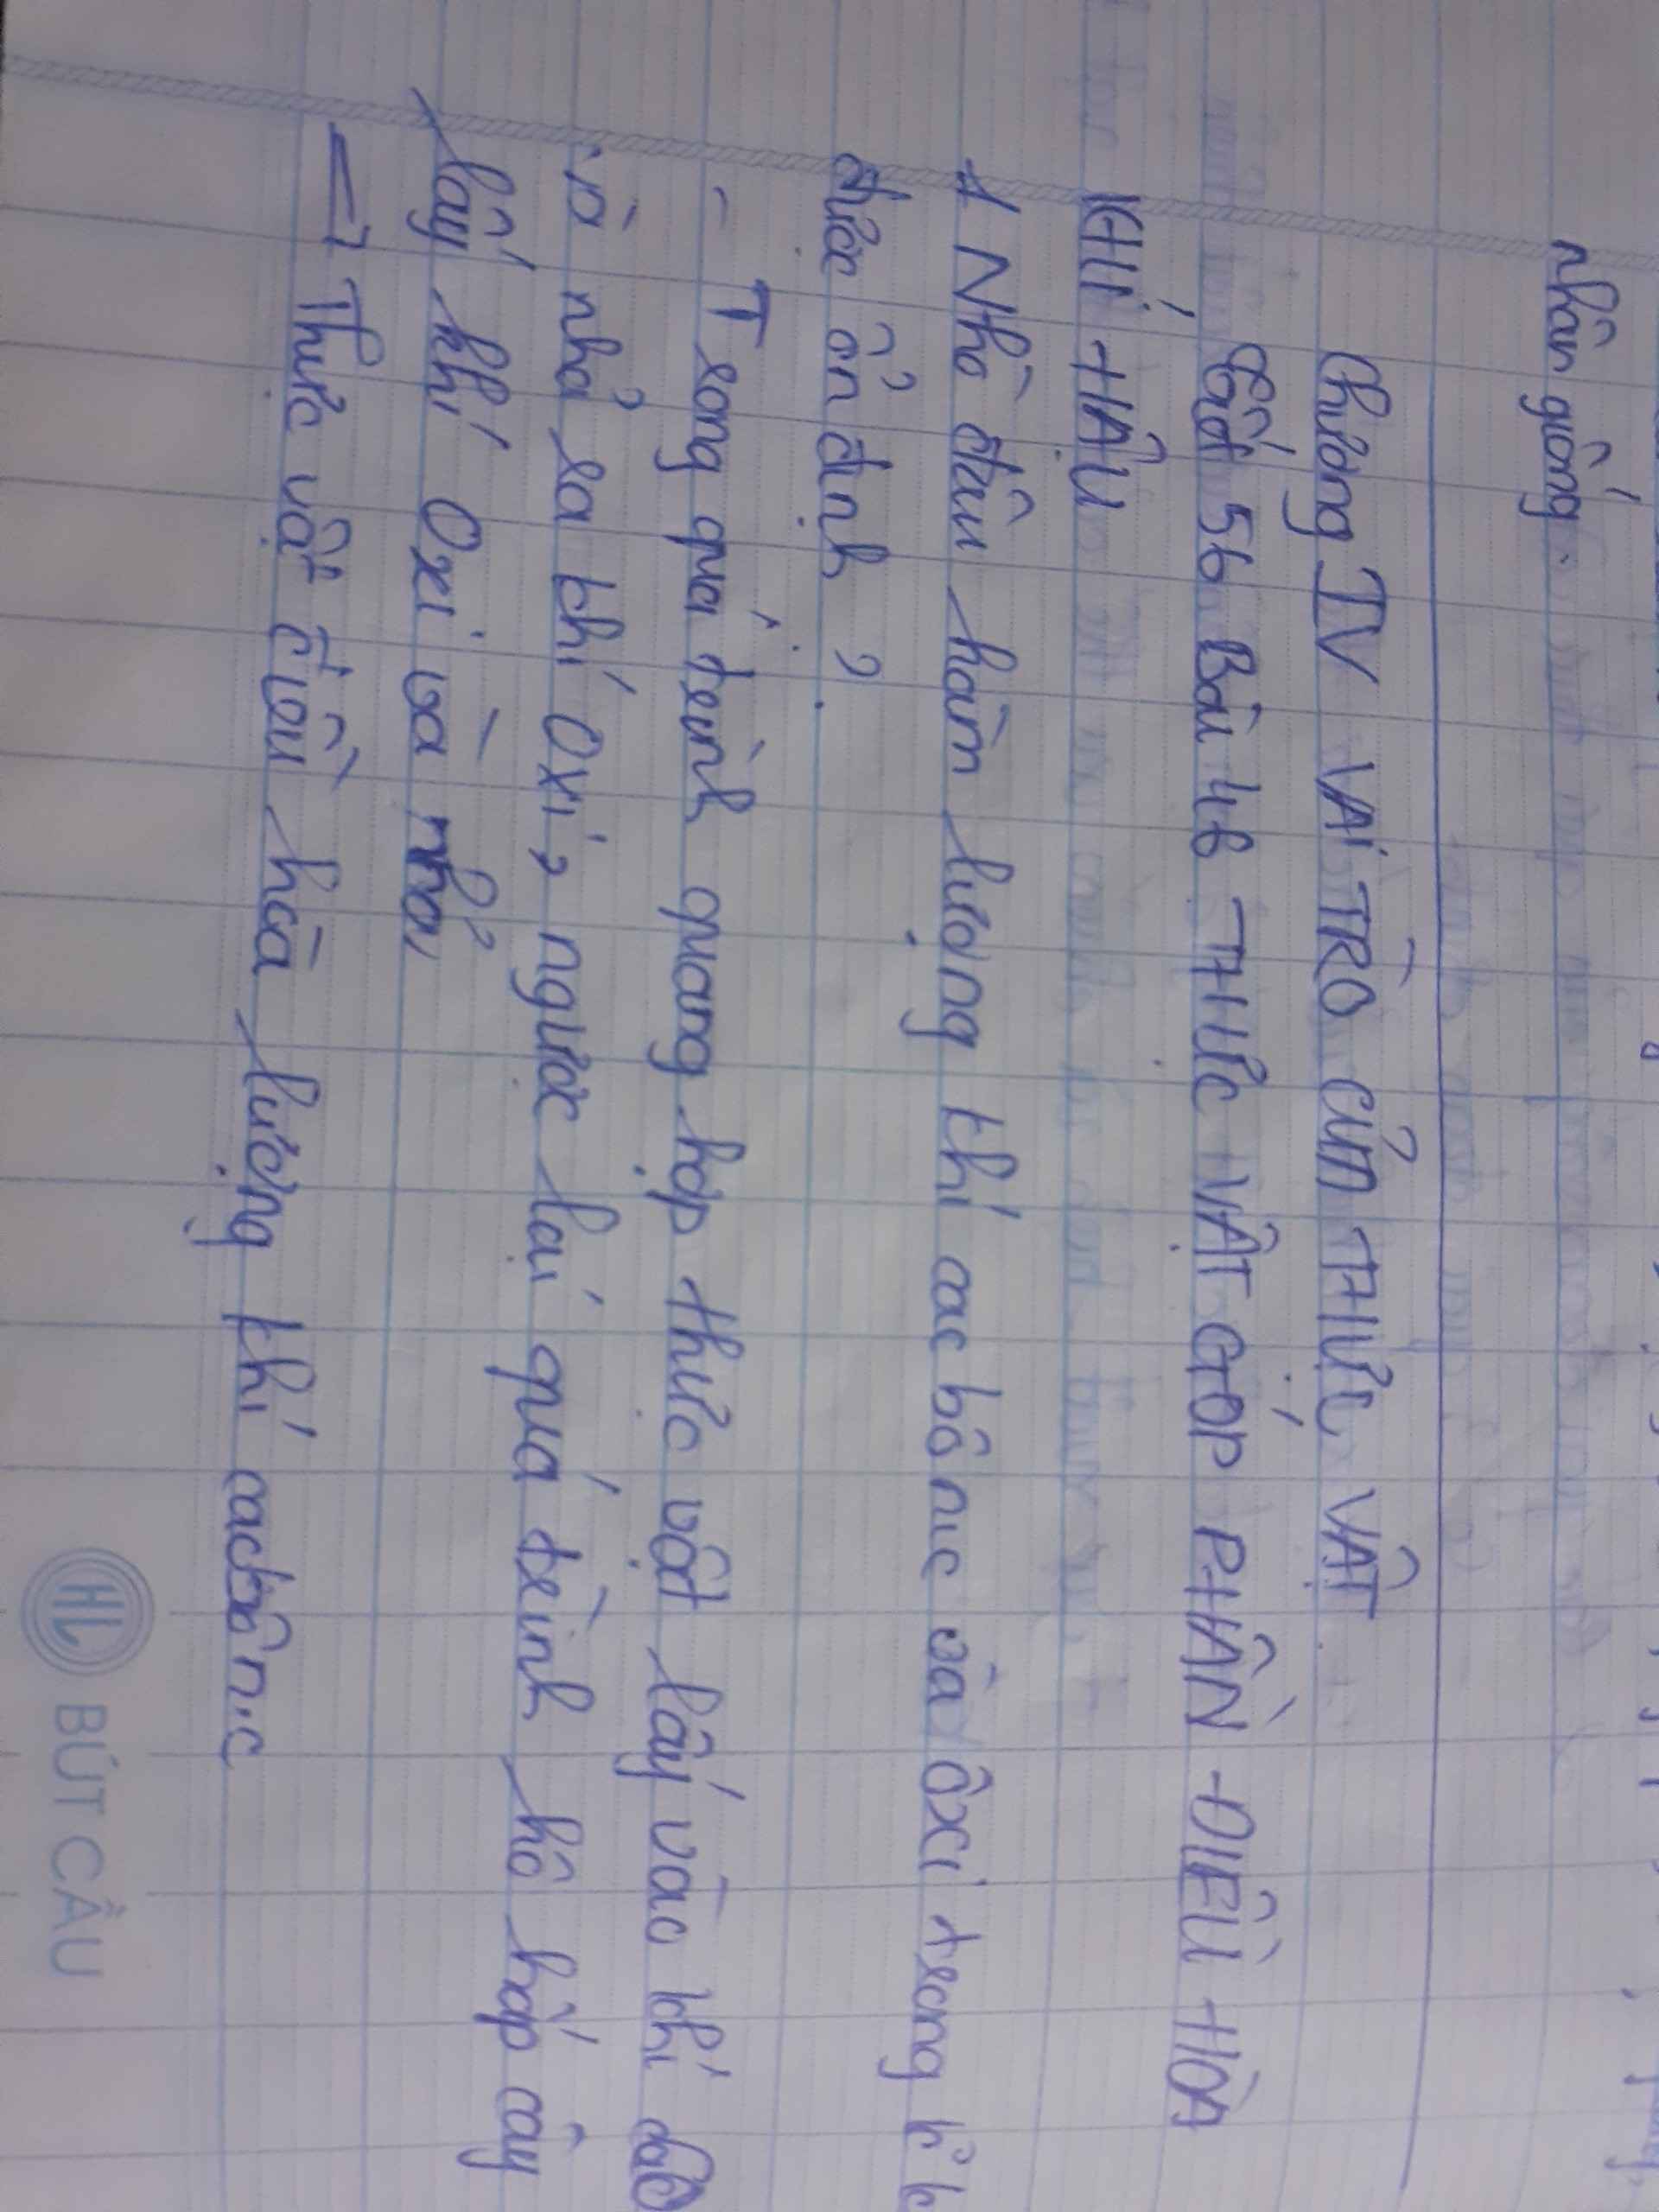 nhân giống.
Chương IV VAI TRÒ CỦA THỰC VẬT
Tiết 56 Bài 46 THỰC VẬT GÓP PHẦN ĐIỀU HÒA
KHÍ HẬU
1 Nhờ đâu hàm lượng khí cacbônic và ôxi trong
được ổn định ?
- Trong quá trình quang hợp thực vật lấy vào khí
và nhả ra khí Oxi, ngược lại quá trình hô hấp cây
lấy khí Oxi và nhả
=> Thực vật điều hòa lượng khí cacbônic
HL BÚT CẦU